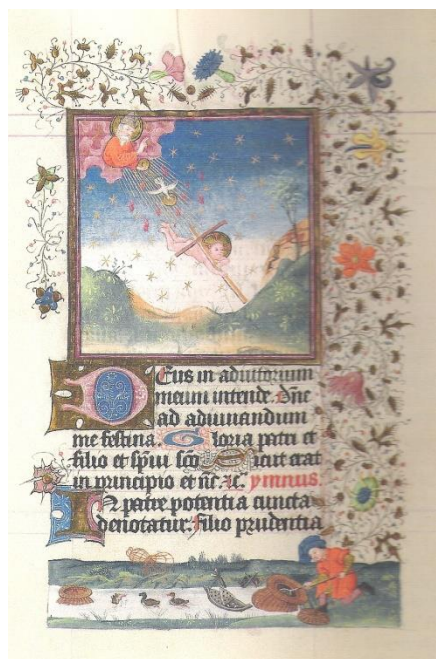 Deus in adiutorium
meum intende. Dñe
ad adiuuandum
me festina. Gloria patri et
filio et spũi sc̃o Sicut erat
in principio et nc̃. ⁊c̃. ymnus.
In patre potentia cuncta
denotatur. filio prudentia